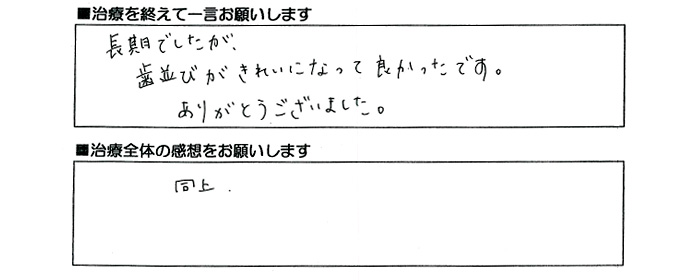 ■治療を終えて一言お願いします
長期でしたが、
歯並びがきれいになって良かったです。
ありがとうございました。
■治療全体の感想をお願いします
同上.